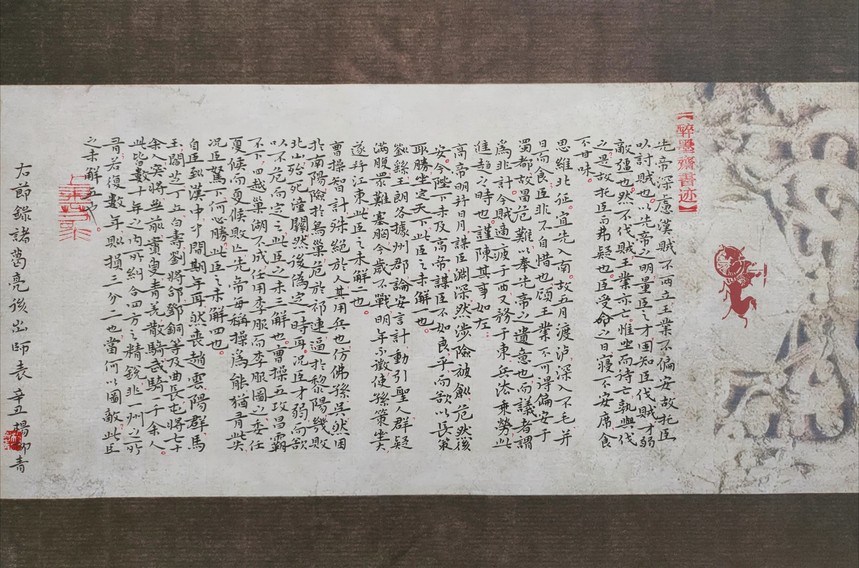 醉墨齋書迹
先帝深慮漢賊不兩立王業不偏安故托臣
以討賊也以先帝之明量臣之才固知臣伐賊才弱
敵彊也然不伐賊王業亦亡惟坐而待亡孰與伐
之是故托臣而弗疑也臣受命之日寢不安席食
不甘味
思維北征宜先入南故五月渡泸深入不毛并
日而食臣非不自惜也顧王業不可得偏安于
蜀都故冒危難以奉先帝之遺意也而議者謂
為非計今賊適疲于西又務于東兵法乘勞此
進趨之時也謹陳其事如左
高帝明并日月謀臣淵深然涉險被創危然後
安今陛下未及高帝謀臣不如良平而欲以長策
取勝坐定天下此臣之未解一也
劉繇王朗各據州郡論安言計動引聖人群疑
滿腹眾難塞胸今歲不戰明年不徵使孫策坐大
遂并江東此臣之未解二也
曹操智計殊絕於人其用兵也仿佛孫吳然困
於南陽險於烏巢危於祁連逼於黎陽幾敗
北山殆死潼關然後偽定一時耳況臣才弱而欲
以不危而定之此臣之未三解也曹操五攻昌霸
不下四越巢湖不成任用李服而李服圖之委任
夏侯而夏侯敗亡先帝每稱操為能猶有此失
況臣駑下何必勝此臣之未解四也
自臣到漢中中間期年耳然喪趙雲陽群馬
玉閻芝丁立白壽劉將郃鄧銅等及曲長屯將七十
余人突將無前賨叟青羌散騎武騎一千余人
此皆數十年之內所糾合四方之精銳非一州之所
有若復數年則損三分二也當何以圖敵此臣
之未解五也
右節錄諸葛亮後出師表辛丑楊柳青